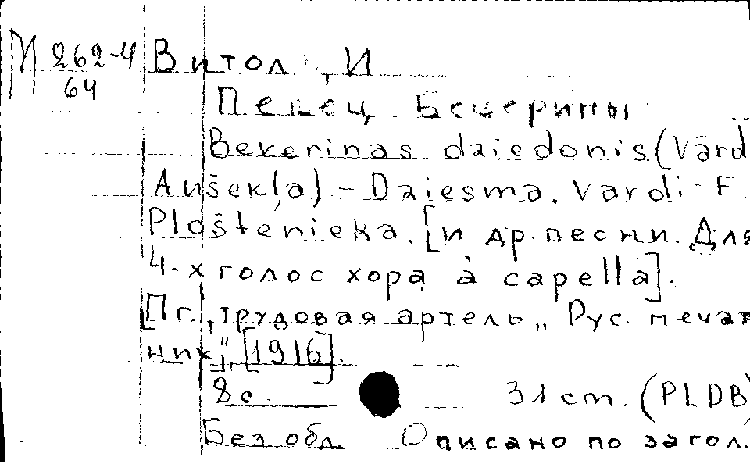 М 262-4 Витол, И
64
Певец Бекерины
Bekerinas dziedonis (Vārd
Aušekļa) - Dziesma. Vārdi F
Ploštenieka. [и др. песни. Для
4-х голос хора à capella].
[Пг., трудовая артель „Рус. печат
ник", [1916].
8 с. 31 cm. (PLDB)
Без обл. Описано по загол.